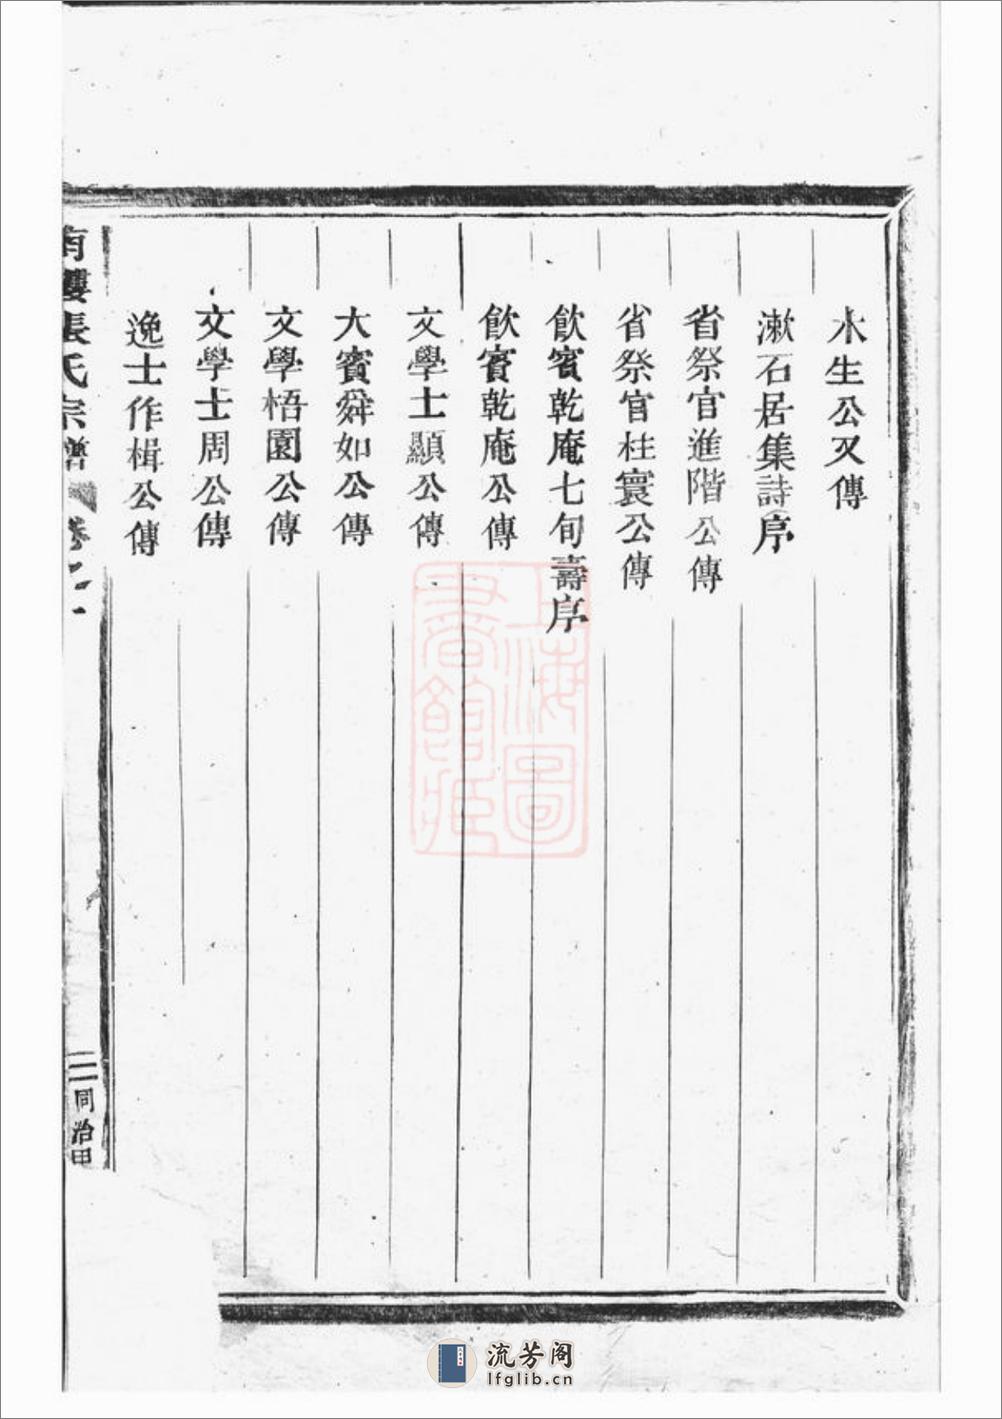 水生公又傳
漱石居集詩序
省祭官進階公傳
省祭官柱寰公傳
飲賓乾庵七旬壽序
飲賓乾庵公傳
文學士顯公傳
大賓舜如公傳
文學梧園公傳
文學士周公傳
逸士作楫公傳
張氏宗譜
三
同治甲
上海圖書館藏
流芳阁
lfglib.cn